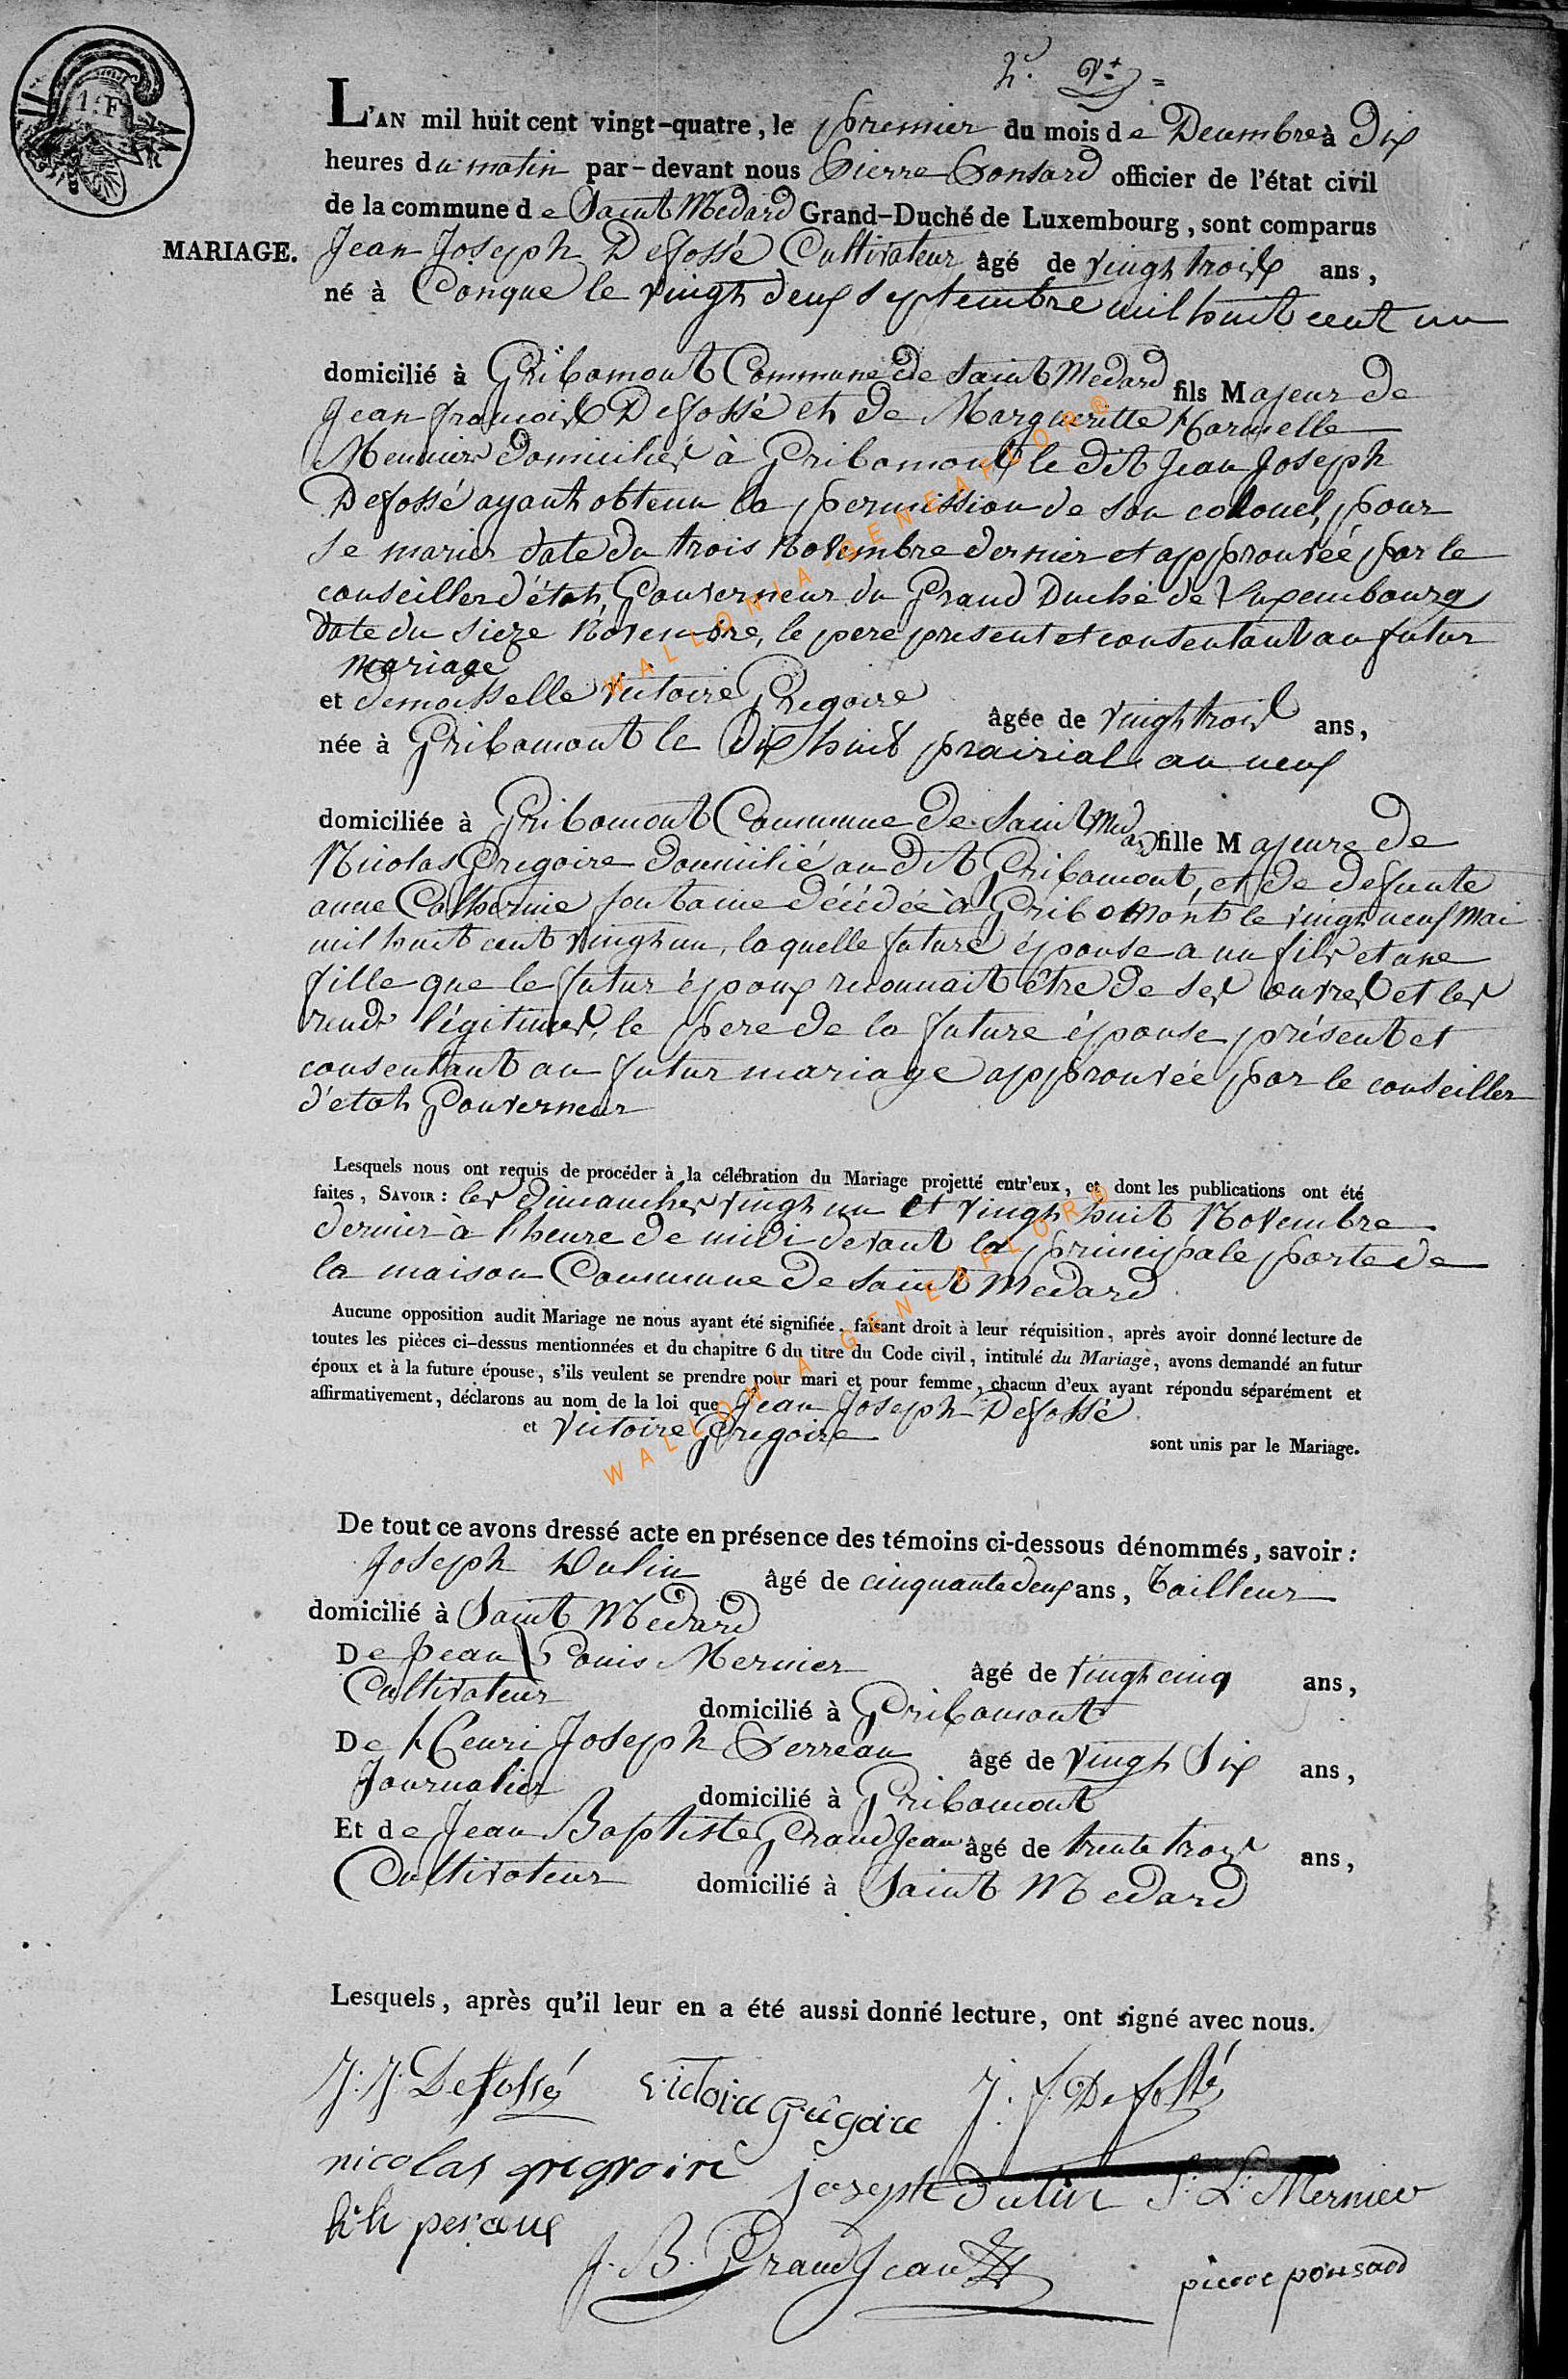 L'AN mil huit cent vingt-quatre, le premier du mois de Decembre à Dix
heures du matin par-devant nous Pierre Ponsard officier de l'état civil
de la commune de Saint Medard Grand-Duché de Luxembourg, sont comparus
MARIAGE.
Jean Joseph Defossé Cultivateur âgé de vingt trois ans,
né à Conque le vingt deux septembre mil huit cent un
domicilié à Gribomont Commune de Saint Medard fils Majeur de
Jean françois Defossé et de Margueritte Harmelle
Meunier domiciliés à Gribomont le dit Jean Joseph
Defossé ayant obtenu la permission de son colonel, pour
se marier date du trois Novembre dernier et approuvée par le
conseiller d'état, Gouverneur du Grand Duché de Luxembourg
date du sieze Novembre, le pere present et consentant au futur
mariage
et demoisselle Victoire Gregoire âgée de vingt trois ans,
née à Gribomont le Dix huit prairial an neuf
domiciliée à Gribomont Commune de Saint Medard fille Majeure de
Nicolas Gregoire domicilié au dit Gribomont, et de defunte
anne Catherine fontaine décédée à Gribomont le vingt neuf mai
mil huit cent vingt un, laquelle future épouse a un fils et une
fille que le futur époux reconnait être de ses œuvres et les
rends légitimes, le pere de la future épouse présent et
consentant au futur mariage approuvée par le conseiller
d'etat Gouverneur
Lesquels nous ont requis de procéder à la célébration du Mariage projetté entr'eux, et dont les publications ont été
faites, SAVOIR : les dimanches vingt un et vingt huit Novembre
dernier à l'heure de midi devant la principale porte de
la maison Commune de Saint Medard
Aucune opposition audit Mariage ne nous ayant été signifiée, faisant droit à leur réquisition, après avoir donné lecture de
toutes les pièces ci-dessus mentionnées et du chapitre 6 du titre du Code civil, intitulé du Mariage, avons demandé au futur
époux et à la future épouse, s'ils veulent se prendre pour mari et pour femme, chacun d'eux ayant répondu séparément et
affirmativement, déclarons au nom de la loi que Jean Joseph Defossé
et Victoire Gregoire sont unis par le Mariage.
De tout ce avons dressé acte en présence des témoins ci-dessous dénommés, savoir :
Joseph Dulin âgé de cinquante deux ans, Tailleur
domicilié à Saint Medard
De Jean Louis Mernier âgé de vingt cinq ans,
Cultivateur domicilié à Gribomont
De Henri Joseph Perreau âgé de vingt Six ans,
Journalier domicilié à Gribomont
Et de Jean Baptiste Grandjean âgé de trente trois ans,
Cultivateur domicilié à Saint Medard
Lesquels, après qu'il leur en a été aussi donné lecture, ont signé avec nous.
J: J: Defossé Victoire Grégoire J. f. Defossé
nicolas gregroire joseph dulin J: L: Mernier
J. B. Grandjean pierre ponsard
WALLONIA-GENEAFLOR®
WALLONIA-GENEAFLOR®